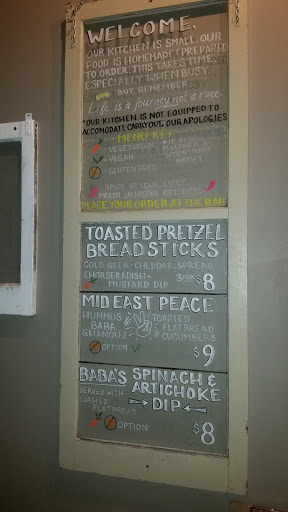 WELCOME.
OUR KITCHEN IS SMALL. OUR
FOOD IS HOMEMADE & PREPARED
TO ORDER. THIS TAKES TIME,
ESPECIALLY WHEN BUSY.
BUT REMEMBER...
Life is a journey not a race.
*OUR KITCHEN IS NOT EQUIPPED TO
ACCOMODATE CARRYOUT. OUR APOLOGIES
MENU KEY
- VEGETARIAN
- VEGAN
- GLUTEN FREE
SPICE UP YOUR EATS!
FRESH JALAPEÑO OPTIONAL
PLACE YOUR ORDER AT THE BAR
TOASTED PRETZEL
BREADSTICKS
COLD BEER-CHEDDAR SPREAD
& HORSERADISH-
MUSTARD DIP
3 FOR $8
MID EAST PEACE
HUMMUS & TOASTED
BABA FLATBREAD
GHANOUJ & CUCUMBERS
OPTION $9
BABA'S SPINACH &
ARTICHOKE
SERVED WITH DIP
TOASTED
FLATBREAD
OPTION $8